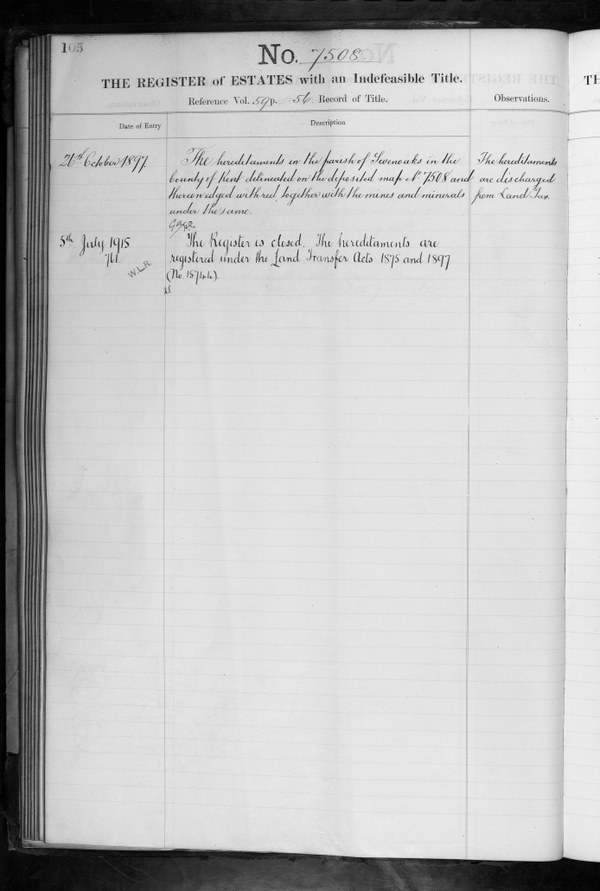 105
No. 7508
THE REGISTER of ESTATES with an Indefeasible Title.
Reference Vol. 59 p. 56 Record of Title.
Observations.
Date of Entry
Description
October 1897
The hereditaments in the parish of Sevenoaks in the
County of Kent delineated on the deposited map No 7508 and
thereon edged with red, together with the mines and minerals
under the same.
The hereditaments
are discharged
from Land Tax
5th July 1915
W.L.R
The Register is closed. The hereditaments are
registered under the Land Transfer Acts 1875 and 1897
(No. 18744)